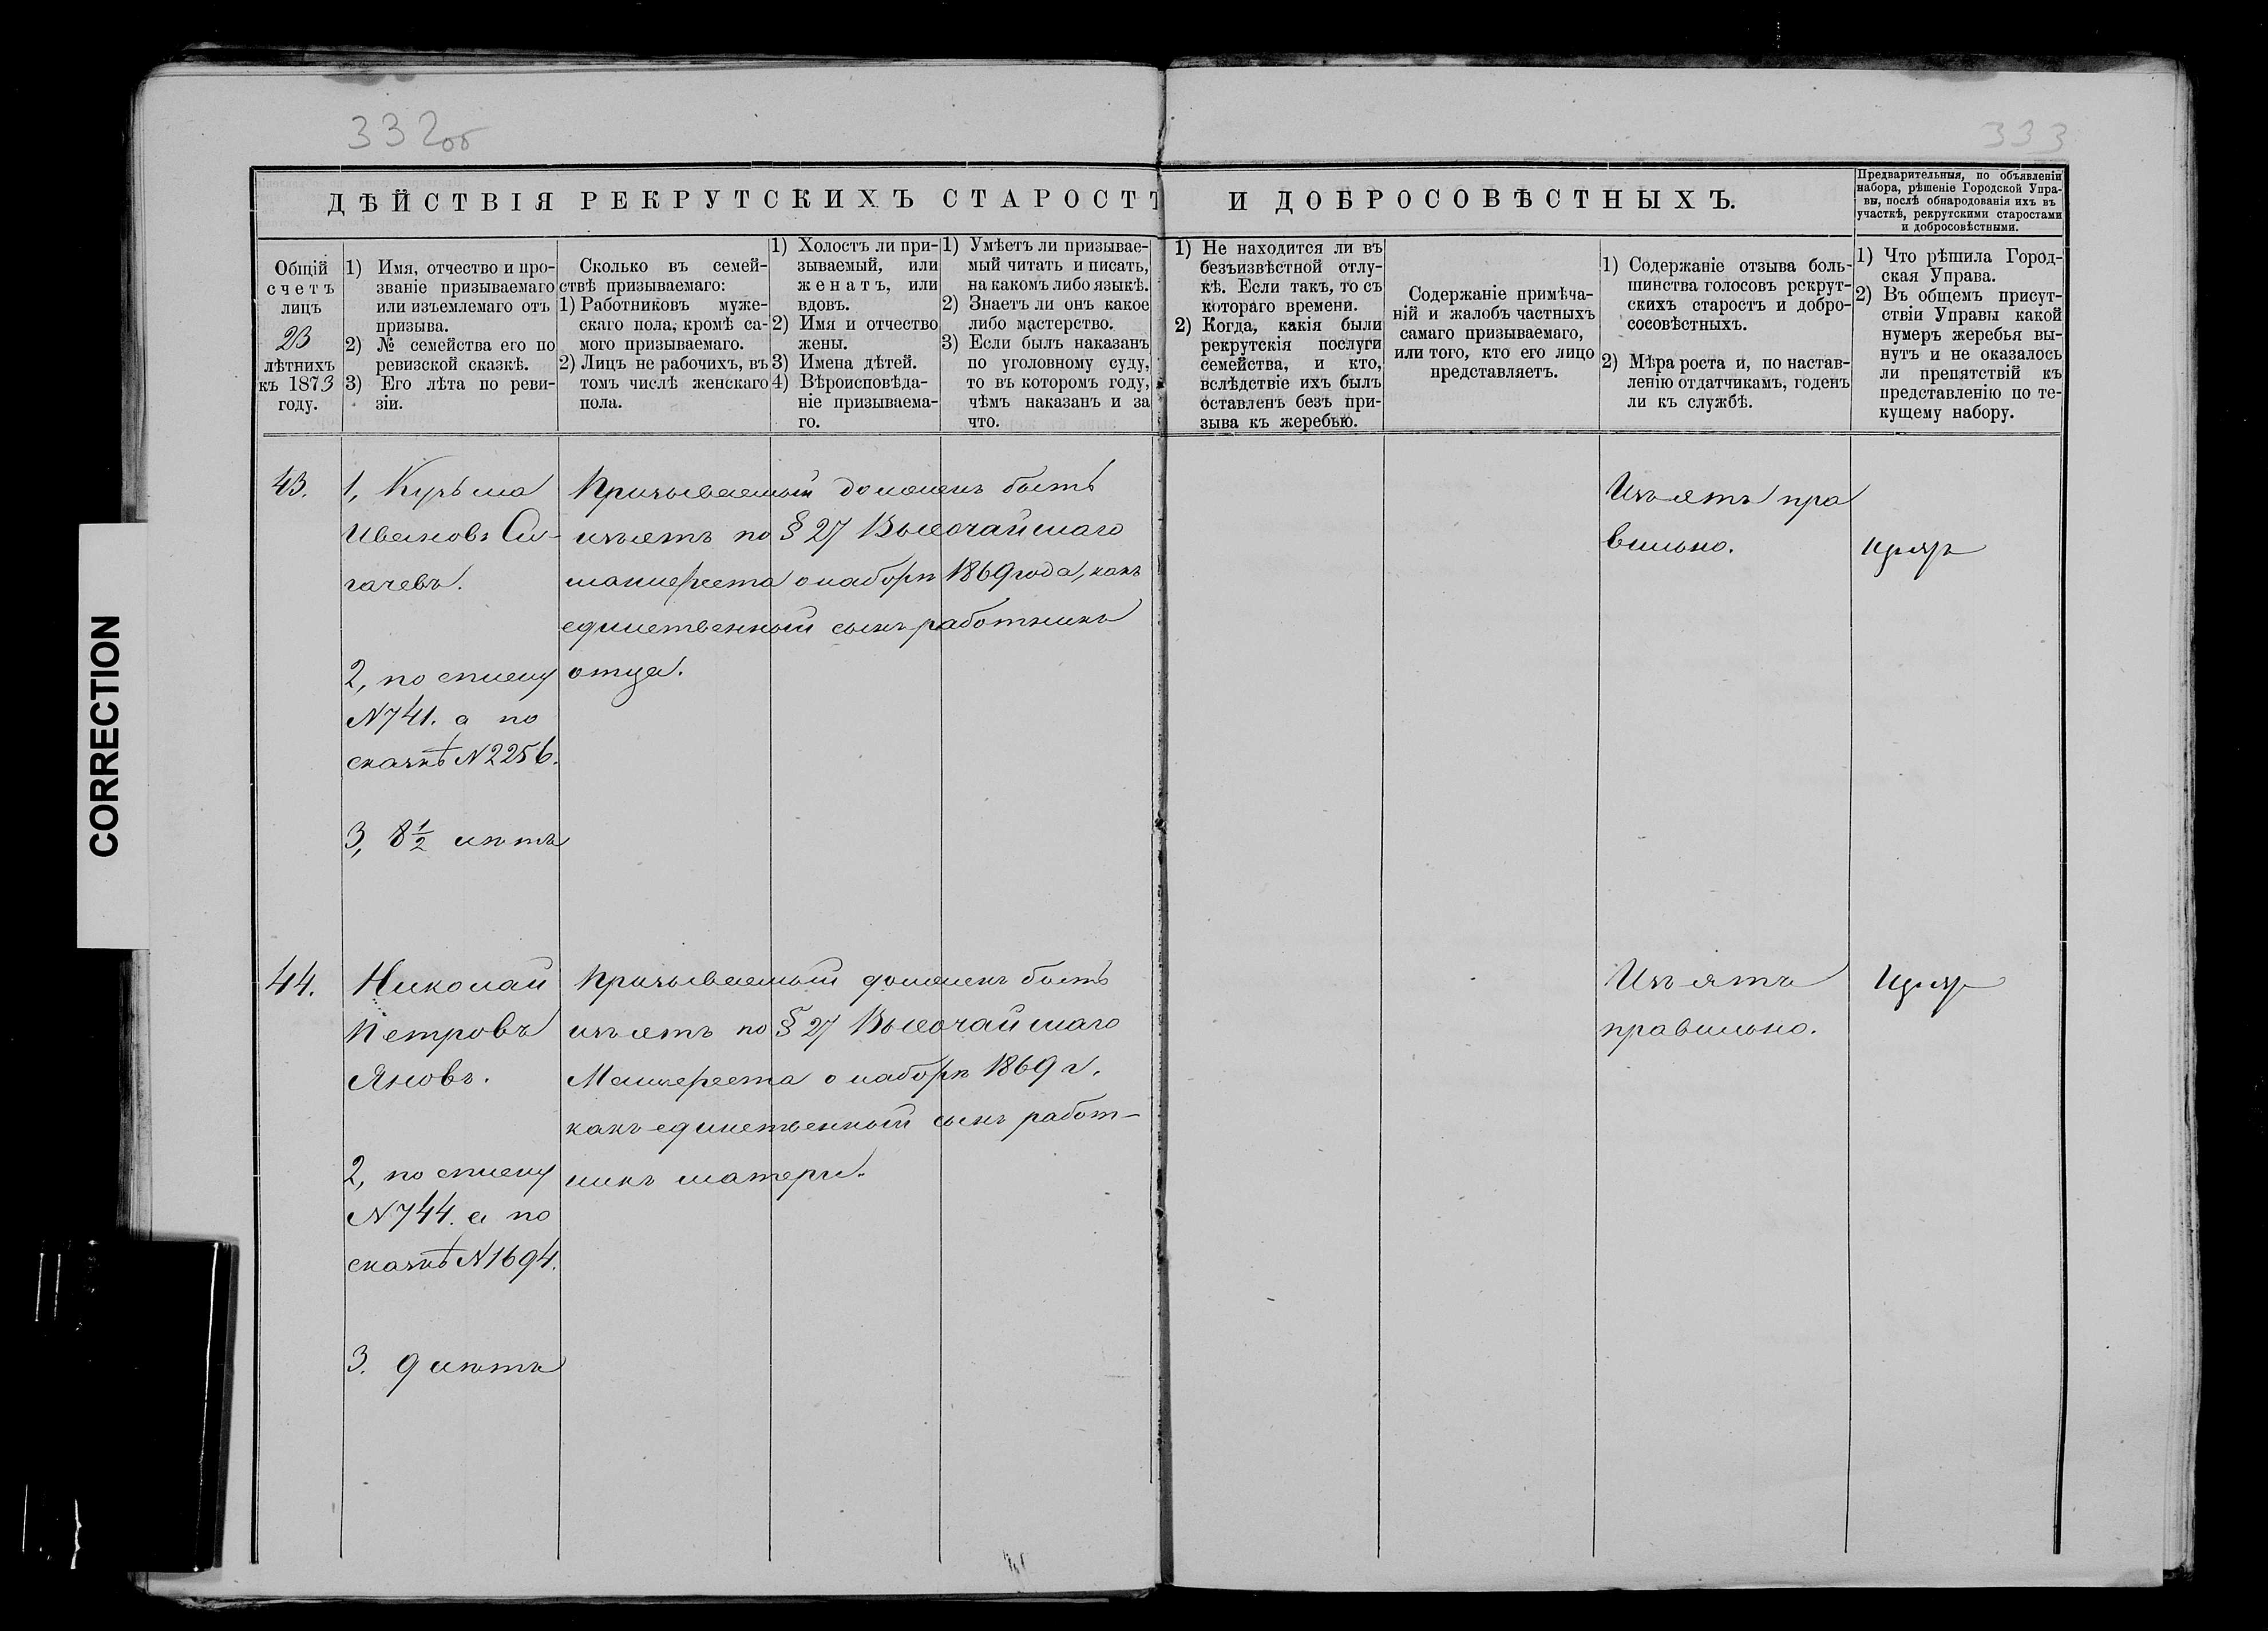 332об
333
ДѢЙСТВІЯ РЕКРУТСКИХЪ СТАРОСТЪ И ДОБРОСОВѢСТНЫХЪ.
Предварительныя, по объявленіи
набора, рѣшеніе Городской Упра-
вы, послѣ обнародованія ихъ въ
участкѣ, рекрутскими старостами
и добросовѣстными.
Общій
счетъ
лицъ
23
лѣтнихъ
къ 1873
году.
1) Имя, отчество и про-
званіе призываемаго
или изъемлемаго отъ
призыва.
2) № семейства его по
ревизской сказкѣ.
3) Его лѣта по реви-
зіи.
Сколько въ семей-
ствѣ призываемаго:
1) Работниковъ муже-
скаго пола, кромѣ са-
мого призываемаго.
2) Лицъ не рабочихъ, въ
томъ числѣ женскаго
пола.
1) Холостъ ли при-
зываемый, или
женатъ, или
вдовъ.
2) Имя и отчество
жены.
3) Имена дѣтей.
4) Вѣроисповѣда-
ніе призываема-
го.
1) Умѣетъ ли призывае-
мый читать и писать,
на какомъ либо языкѣ.
2) Знаетъ ли онъ какое
либо мастерство.
3) Если былъ наказанъ
по уголовному суду,
то въ которомъ году,
чѣмъ наказанъ и за
что.
1) Не находится ли въ
безъизвѣстной отлу-
кѣ. Если такъ, то съ
котораго времени.
2) Когда, какія были
рекрутскія послуги
семейства, и кто,
вслѣдствіе ихъ былъ
оставленъ безъ при-
зыва къ жеребью.
Содержаніе примѣча-
ній и жалобъ частныхъ
самаго призываемаго,
или того, кто его лицо
представляетъ.
1) Содержаніе отзыва боль-
шинства голосовъ рекрут-
скихъ старостъ и добро-
сосовѣстныхъ.
2) Мѣра роста и, по настав-
ленію отдатчикамъ, годенъ
ли къ службѣ.
1) Что рѣшила Город-
ская Управа.
2) Въ общемъ присут-
ствіи Управы какой
нумеръ жеребья вы-
нутъ и не оказалось
ли препятствій къ
представленію по те-
кущему набору.
43.
1, Кузьма
Ивановъ Си-
гачевъ.
2, по списку
N741. а по
сказкѣ N2256.
3, 8½ лѣтъ
Призываемый долженъ быть
изъятъ по § 27 Высочайшаго
манифеста о наборѣ 1869 года, какъ
единственный сынъ работникъ
отца.
Изъятъ пра
вильно.
44.
Николай
Петровъ
Яновъ.
2, по списку
N744. а по
сказкѣ N1694.
3. 9 лѣтъ
Призываемый долженъ быть
изъятъ по § 27 Высочайшаго
Манифеста о наборѣ 1869 г.
какъ единственный сынъ работ-
никъ матери.
Изъятъ
правильно.
CORRECTION